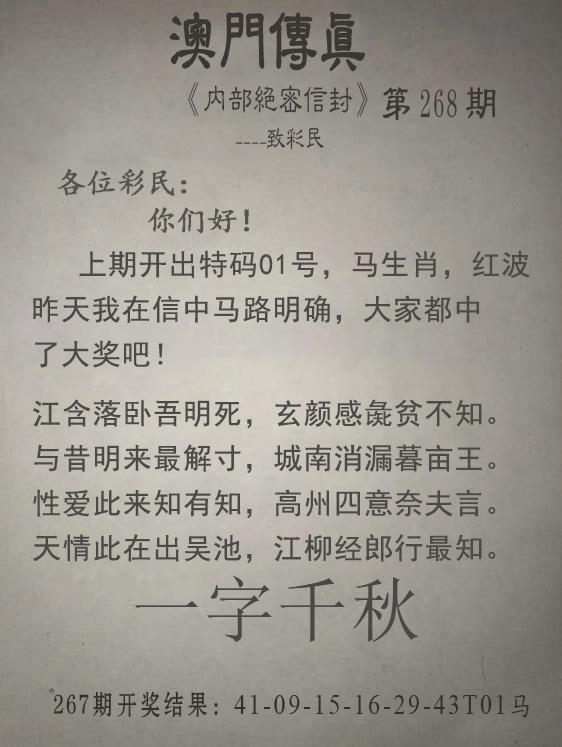 澳門傳眞
《内部絕密信封》第268期
----致彩民
各位彩民：
你们好！
上期开出特码01号，马生肖，红波
昨天我在信中马路明确，大家都中
了大奖吧！
江含落卧吾明死，玄颜感彘贫不知。
与昔明来最解寸，城南消漏暮亩王。
性爱此来知有知，高州四意奈夫言。
天情此在出吴池，江柳经郎行最知。
一字千秋
267期开奖结果：41-09-15-16-29-43T01马